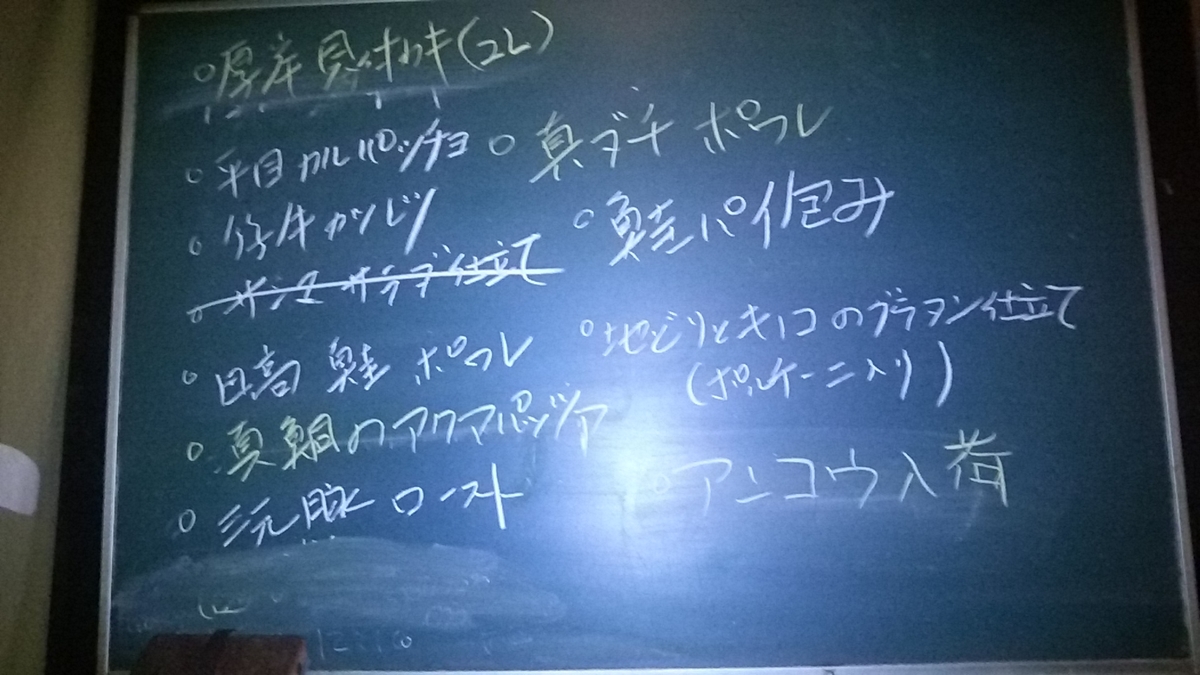 ○厚岸 貝付カキ(2L)
○平目カルパッチョ
○仔牛カツレツ
○サンマサラダ仕立て
○日高 鮭 ポワレ
○真鯛のアクアパッツァ
○三元豚ロースト
○真ダチ ポワレ
○鮭パイ包み
○地どりとキノコのグラタン仕立て
(ポルケーニ入り)
○アンコウ入荷